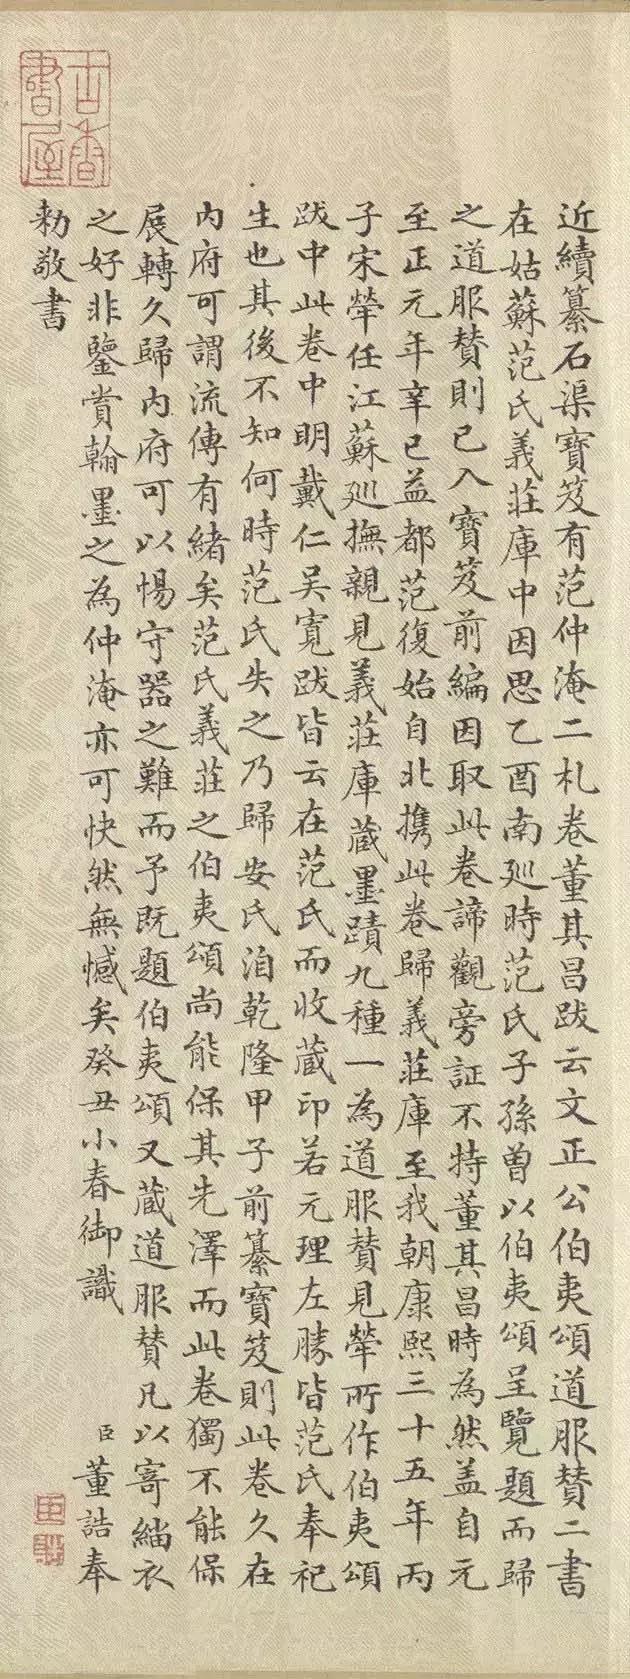 近續纂石渠寶笈有范仲淹二札卷董其昌跋云文正公伯夷頌道服贊二書
在姑蘇范氏義莊庫中因思乙酉南廵時范氏子孫曾以伯夷頌呈覽題而歸
之道服贊則已入寶笈前編因取此卷諦觀旁証不特董其昌時為然盖自元
至正元年辛巳益都范復始自北攜此卷歸義莊庫至我朝康熙三十五年丙
子宋犖任江蘇廵撫親見義莊庫蔵墨蹟九種一為道服贊見犖所作伯夷頌
跋中此卷中明戴仁吴寛跋皆云在范氏而收蔵印若元理左勝皆范氏奉祀
生也其後不知何時范氏失之乃歸安氏洎乾隆甲子前纂寶笈則此卷久在
內府可謂流傳有緒矣范氏義莊之伯夷頌尚能保其先澤而此卷獨不能保
展轉久歸內府可以惕守器之難而予既題伯夷頌又蔵道服贊凡以寄緇衣
之好非鑒賞翰墨之為仲淹亦可快然無憾矣癸丑小春御識 臣董誥奉
勑敬書
古香書屋